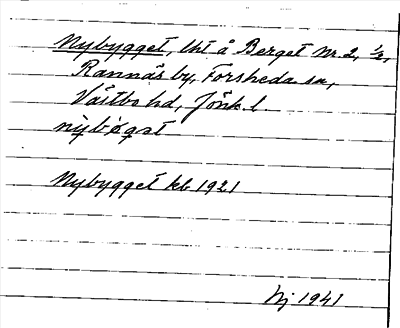 Nybygget, lht å Berget Nr 2, ½,
Rannäs by, Forsheda sn,
Västbo hd, Jönk. l.
nỳbỳgət
Nybygget kb 1921
Nj 1941